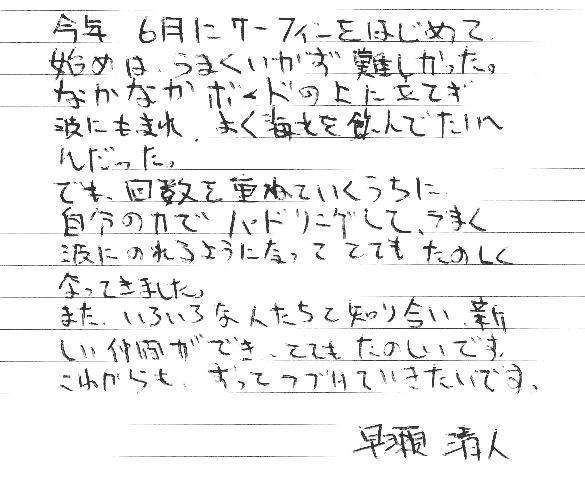 今年 6月にサーフィンをはじめて
始めは、うまくいかず 難しかった。
なかなかボードの上に立てず
波にもまれ、よく海水を飲んでたいへ
んだった。
でも、回数を重ねていくうちに
自分の力で パドリングして、うまく
波にのれるようになって とても たのしく
なってきました。
また、いろいろな人たちと知り合い、新
しい仲間ができ、とても たのしいです。
これからも、ずっとつづけていきたいです。
早瀬 清人